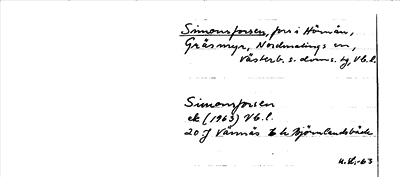 Simonsforsen, fors i Hörnån,
Gräsmyr, Nordmalings sn,
Västerb. s. doms. tg, Vb. l.
Simonsforsen
ek (1963) Vb. l.
20 J Vännäs Björnlandsbäck
-63